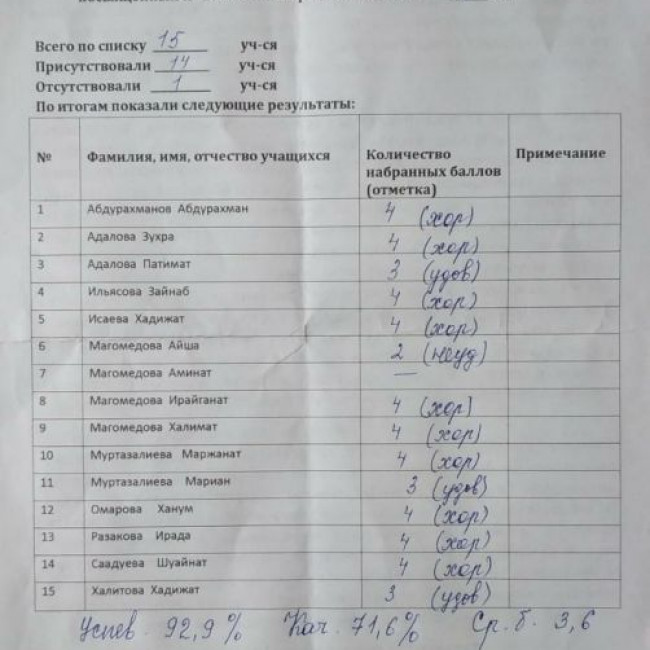 Всего по списку 15 уч-ся
Присутствовали 14 уч-ся
Отсутствовали 1 уч-ся
По итогам показали следующие результаты:
№ Фамилия, имя, отчество учащихся Количество набранных баллов (отметка) Примечание
1 Абдурахманов Абдурахман 4 (хор)
2 Адалова Зухра 4 (хор)
3 Адалова Патимат 3 (удов)
4 Ильясова Зайнаб 4 (хор)
5 Исаева Хадижат 4 (хор)
6 Магомедова Айша 2 (неуд)
7 Магомедова Аминат —
8 Магомедова Ирайганат 4 (хор)
9 Магомедова Халимат 4 (хор)
10 Муртазалиева Маржанат 4 (хор)
11 Муртазалиева Мариан 3 (удов)
12 Омарова Ханум 4 (хор)
13 Разакова Ирада 4 (хор)
14 Саадуева Шуайнат 4 (хор)
15 Халитова Хадижат 3 (удов)
Успев. 92,9% Кач. 71,6% Ср. б. 3,6